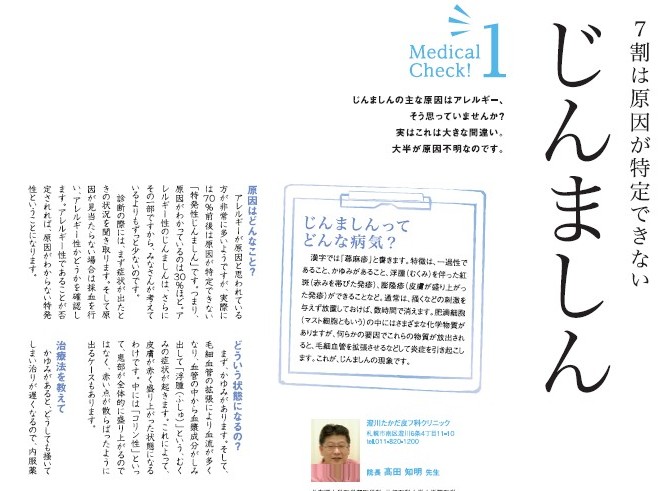 7割は原因が特定できない
じんましん
Medical
Check! 1
じんましんの主な原因はアレルギー、
そう思っていませんか?
実はこれは大きな間違い。
大半が原因不明なのです。
じんましんって
どんな病気?
漢字では「蕁麻疹」と書きます。特徴は、一過性で
あること、かゆみがあること、浮腫(むくみ)を伴った紅
斑(赤みを帯びた発疹)、膨隆疹(皮膚が盛り上がっ
た発疹)ができることなど。通常は、掻くなどの刺激を
与えず放置しておけば、数時間で消えます。肥満細胞
(マスト細胞ともいう)の中にはさまざまな化学物質が
ありますが、何らかの要因でこれらの物質が放出され
ると、毛細血管を拡張させるなどして炎症を引き起こし
ます。これが、じんましんの現象です。
原因はどんなこと?
アレルギーが原因と思われている
方が非常に多いようですが、実際に
は70%前後は原因が特定できない
「特発性じんましん」です。つまり、
原因がわかっているのは30%ほど。ア
レルギー性のじんましんは、さらに
その一部ですから、みなさんが考えて
いるよりもずっと少ないのです。
診断の際には、まず症状が出たと
きの状況を聞き取ります。そして原
因が見当たらない場合は採血を行
い、アレルギー性かどうかを確認し
ます。アレルギー性であることが否
定されれば、原因がわからない特発
性ということになります。
どういう状態になるの?
まず、かゆみがあります。そして、
毛細血管の拡張により血流が多く
なり、血管の中から血漿成分がしみ
出して「浮腫(ふしゅ)」という、むく
みの症状が起きます。これによって、
皮膚が赤く盛り上がった状態になる
わけです。中には「コリン性」といっ
て、患部が全体的に盛り上がるので
はなく、赤い点が散らばったように
出るケースもあります。
治療法を教えて
かゆみがあると、どうしても掻いて
しまい治りが遅くなるので、内服薬
澄川たかだ皮フ科クリニック
札幌市南区澄川6条4丁目11-10
tel.011・820・1200
院長 高田 知明 先生